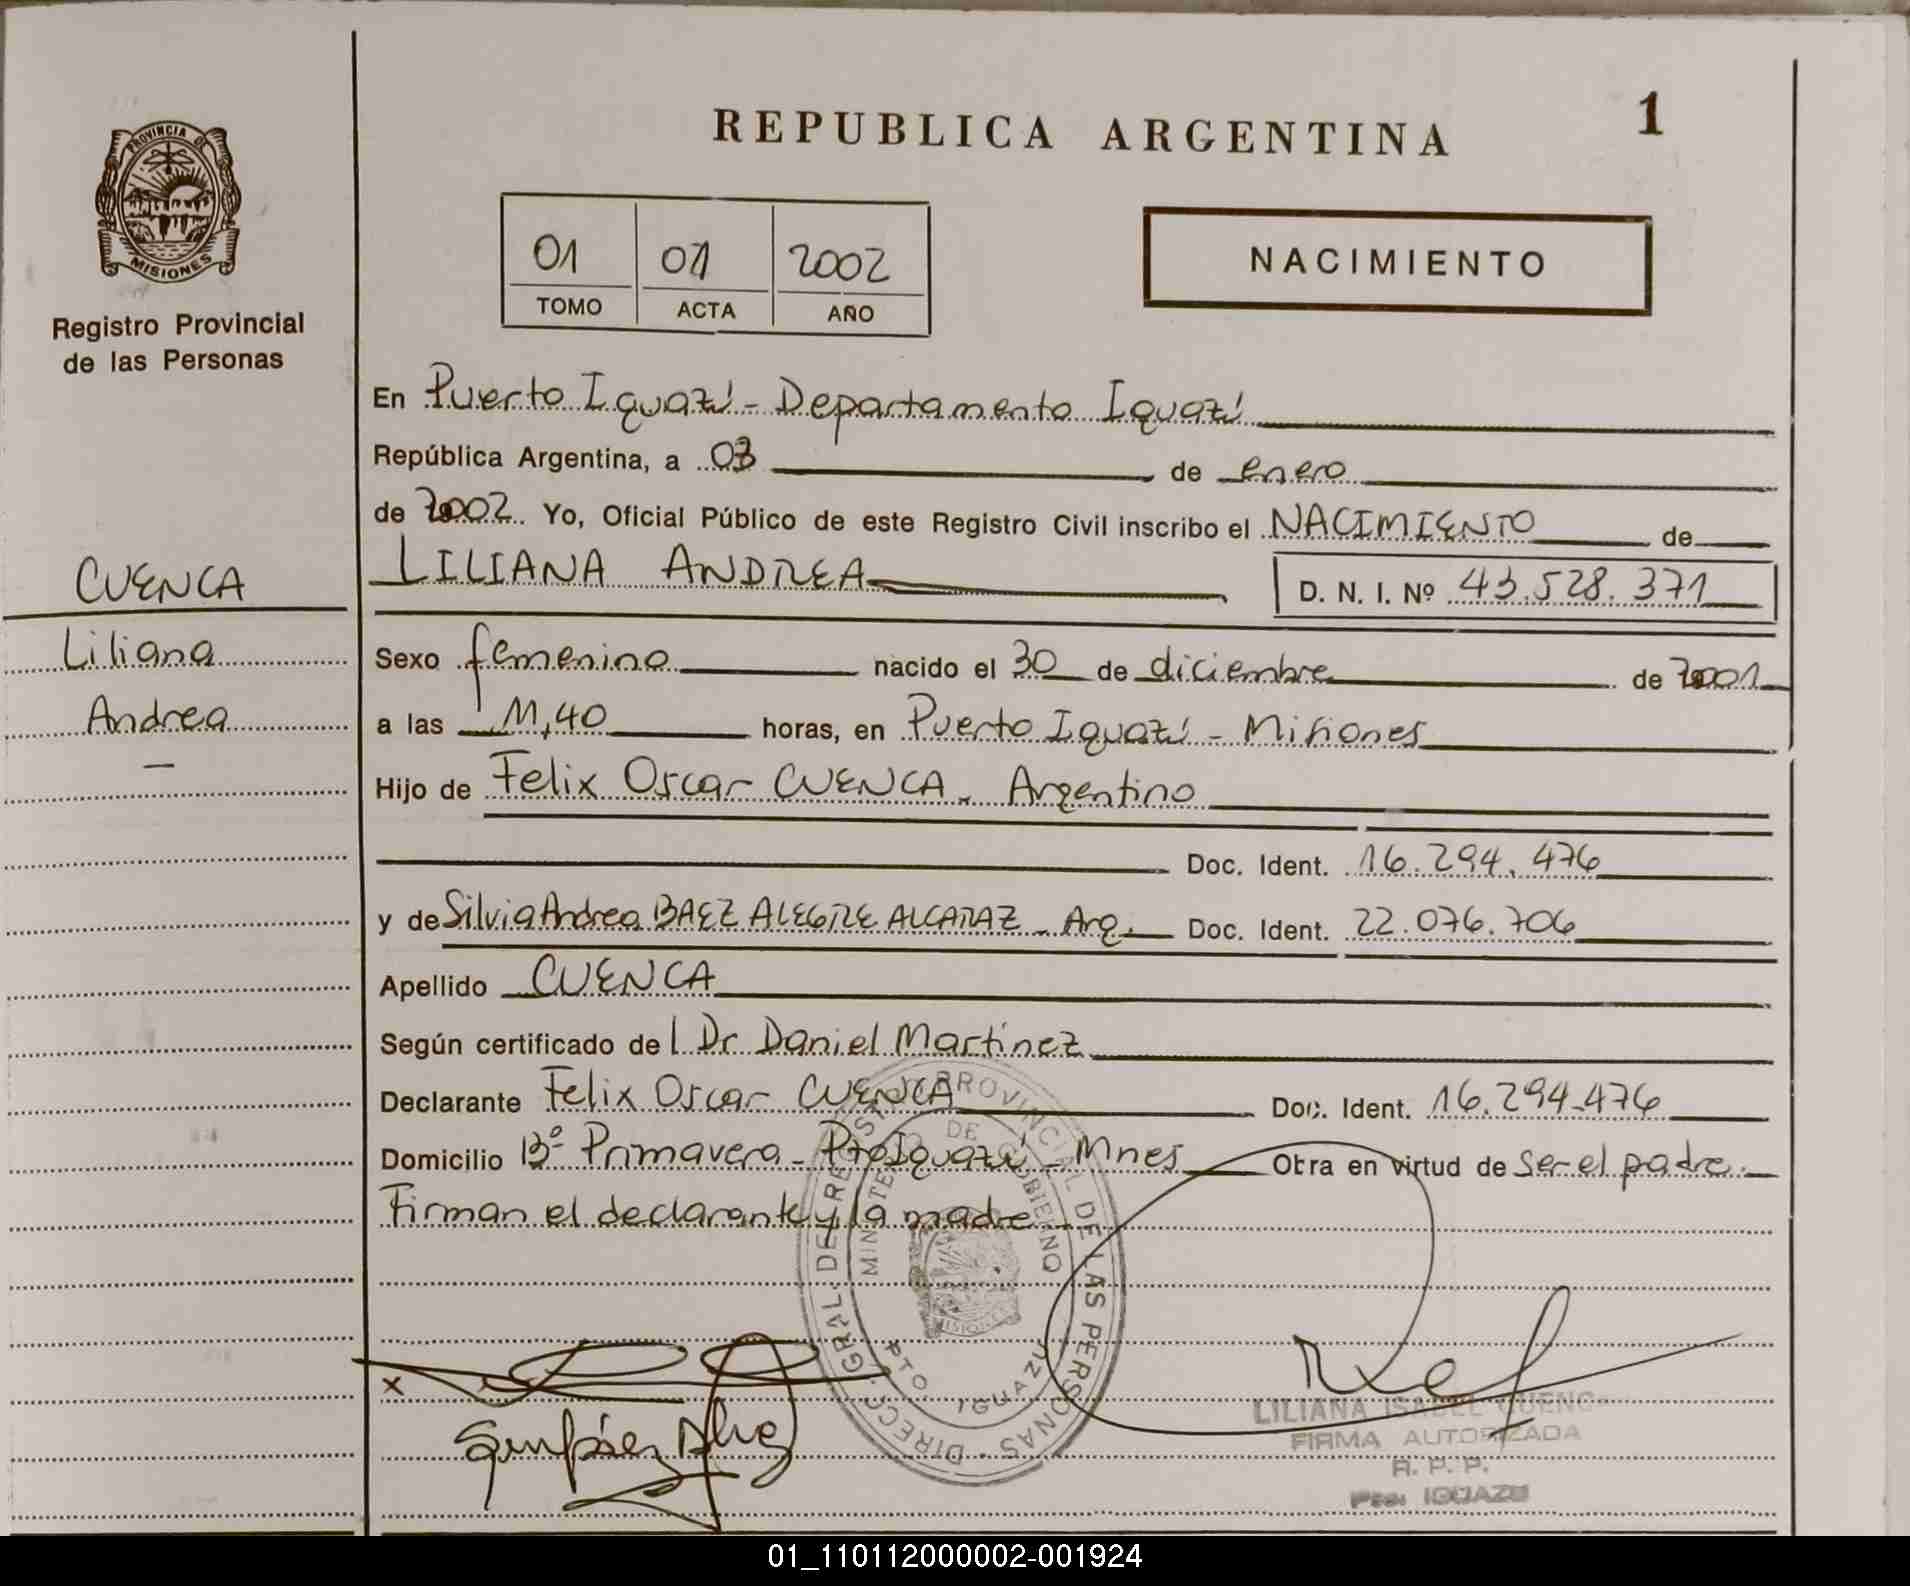 REPUBLICA ARGENTINA
1
PROVINCIA DE
MISIONES
Registro Provincial
de las Personas
01 01 2002
TOMO ACTA AÑO
NACIMIENTO
En Puerto Iguazú - Departamento Iguazú
República Argentina, a 03 de enero
de 2002. Yo, Oficial Público de este Registro Civil inscribo el NACIMIENTO de
LILIANA ANDREA D. N. I. Nº 43.528.371
CUENCA
Liliana
Andrea
—
Sexo femenino nacido el 30 de diciembre de 2001
a las 11,40 horas, en Puerto Iguazú - Misiones
Hijo de Felix Oscar CUENCA - Argentino
Doc. Ident. 16.294.476
y de Silvia Andrea BAEZ ALEGRE ALCARAZ - Arg. Doc. Ident. 22.076.706
Apellido CUENCA
Según certificado del Dr Daniel Martínez
Declarante Felix Oscar CUENCA Doc. Ident. 16.294.476
Domicilio Bº Primavera - Pto Iguazú - Mnes Obra en virtud de ser el padre.
Firman el declarante y la madre -
DIRECC. GRAL. DE REGISTRO PROVINCIAL DE LAS PERSONAS
MINISTERIO DE GOBIERNO
MISIONES
PTO. IGUAZU
x
LILIANA ISABEL CUENCA
FIRMA AUTORIZADA
R. P. P.
Pto. IGUAZU
01_110112000002-001924